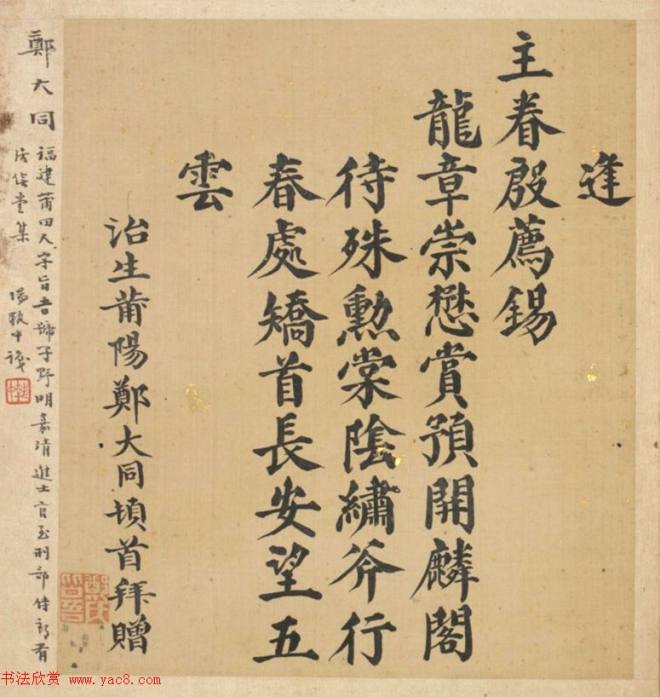 逢
主眷殷薦錫
龍章崇懋賞預開麟閣
待殊勲棠陰繡斧行
春處矯首長安望五
雲
治生莆陽鄭大同頓首拜贈
鄭氏
旨吾
鄭大同 福建莆田人字旨吾號子野明嘉靖進士官至刑部侍郎有
集
书法欣赏 www.yac8.com